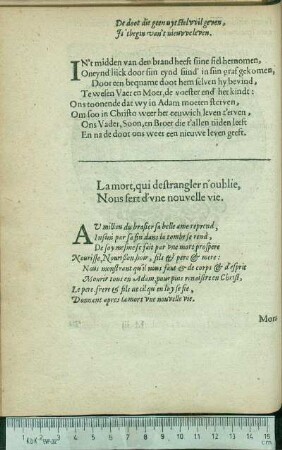 De doot die geen uytstel wil geven,
Is 'tbegin van't nieuwe leven.
IN't midden van den brand heeft sijne siel benomen,
Oneynd lijck door sijn eynd sijnd' in sijn graf gekomen,
Door een bequame doot hem selven hy bevind,
Te wesen Vaer en Moer, de voester end' het kindt:
Ons toonende dat wy in Adam moeten sterven,
Om soo in Christo weer het eeuwich leven t'erven,
Ons Vader, Soon, en Broer die t'allen tijden leeft
En na de doot ons weer een nieuwe leven geeft.
La mort, qui d'estrangler n'oublie,
Nous sert d'vne nouvelle vie.
AU milieu du brasier sa belle ame reprend,
par sa fin dans la tombe se rend,
De soy mesme se fait par vne mort prospere
Nourisse, Nourisson, fils & pere & mere:
Nous monstrant qu'il nous faut & de corps & d'esprit
Mourir tous en Adam, pour puis renaistre en Christ,
Le pere, frere & fils
Donnent apres la mort vne nouvelle vie.
Mort
1 2 3 4 5 6 7 8 9 10 11 12 13 14 15
cm